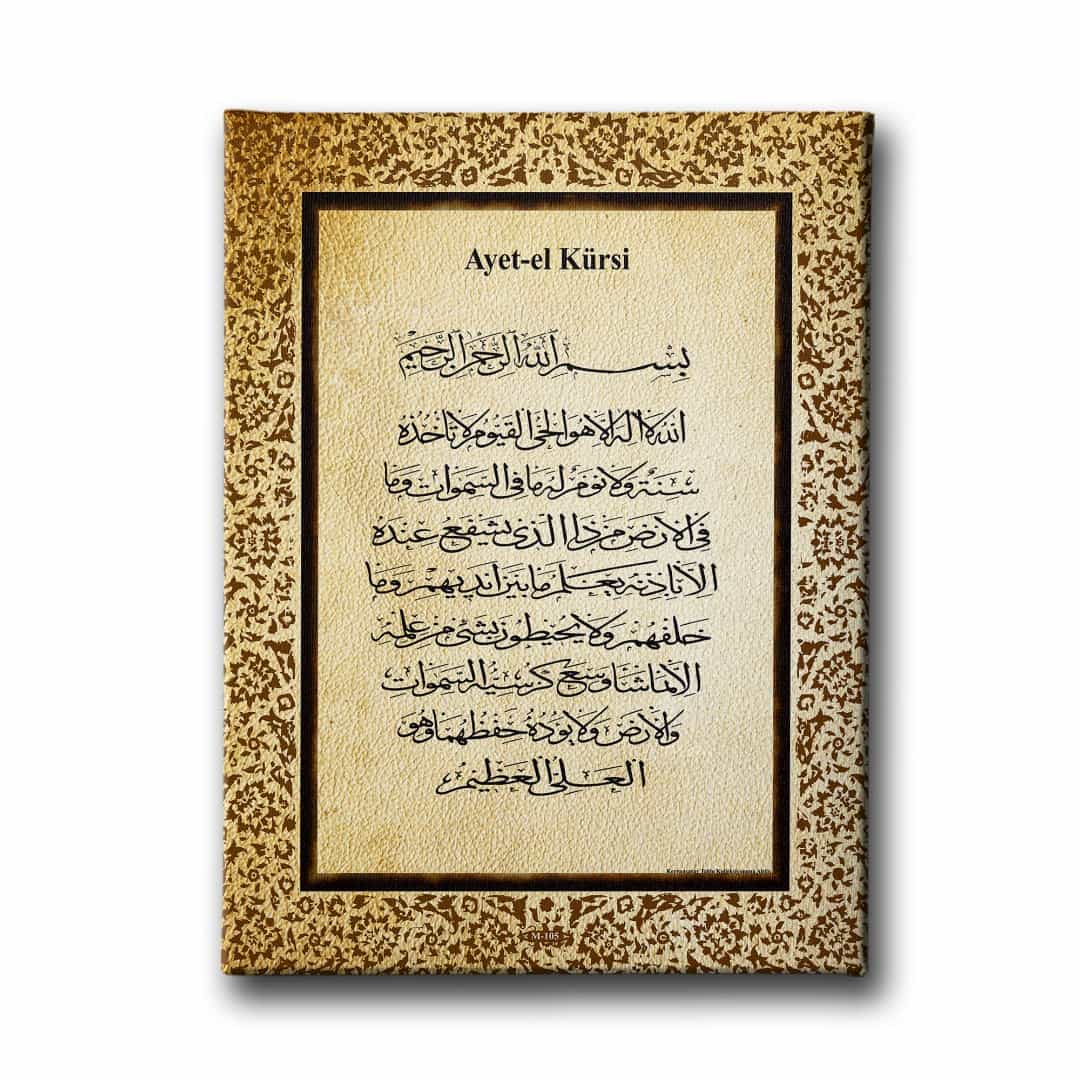 Ayet-el Kürsi
بِسْمِ اللهِ الرَّحْمٰنِ الرَّحِيْمِ
الله لا اله الا هو الحى القيوم لا تأخذه
سنة ولا نوم له ما فى السموات وما
فى الارض من ذا الذى يشفع عنده
الا باذنه يعلم ما بين ايديهم وما
خلفهم ولا يحيطون بشئ من علمه
الا بما شاء وسع كرسيه السموات
والارض ولا يؤده حفظهما وهو
العلى العظيم
M-105